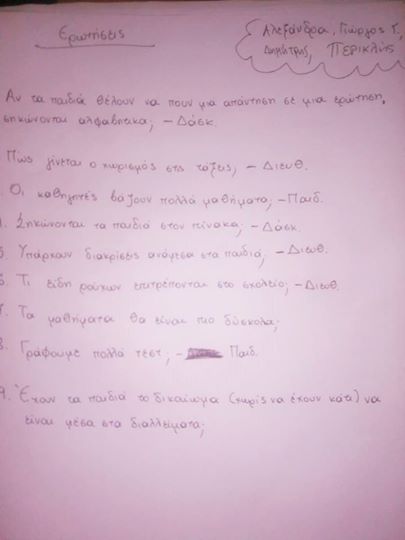 Ερωτήσεις
Αλεξάνδρα, Γιώργος Γ.
Δημήτρης, Περικλής
Αν τα παιδιά θέλουν να πουν μια απάντηση σε μια ερώτηση,
σηκώνονται αλφαβητικά; - Δάσκ.
Πώς γίνεται ο χωρισμός στις τάξεις; - Διευθ.
Οι καθηγητές βάζουν πολλά μαθήματα; - Παιδ.
Σηκώνονται τα παιδιά στον πίνακα; - Δάσκ.
5. Υπάρχουν διακρίσεις ανάμεσα στα παιδιά; - Διευθ.
6. Τι είδη ρούχων επιτρέπονται στο σχολείο; - Διευθ.
7. Τα μαθήματα θα είναι πιο δύσκολα;
8. Γράφουμε πολλά τεστ; - Παιδ.
9. Έχουν τα παιδιά το δικαίωμα (χωρίς να έχουν κάτι) να
είναι μέσα στα διαλλείματα;